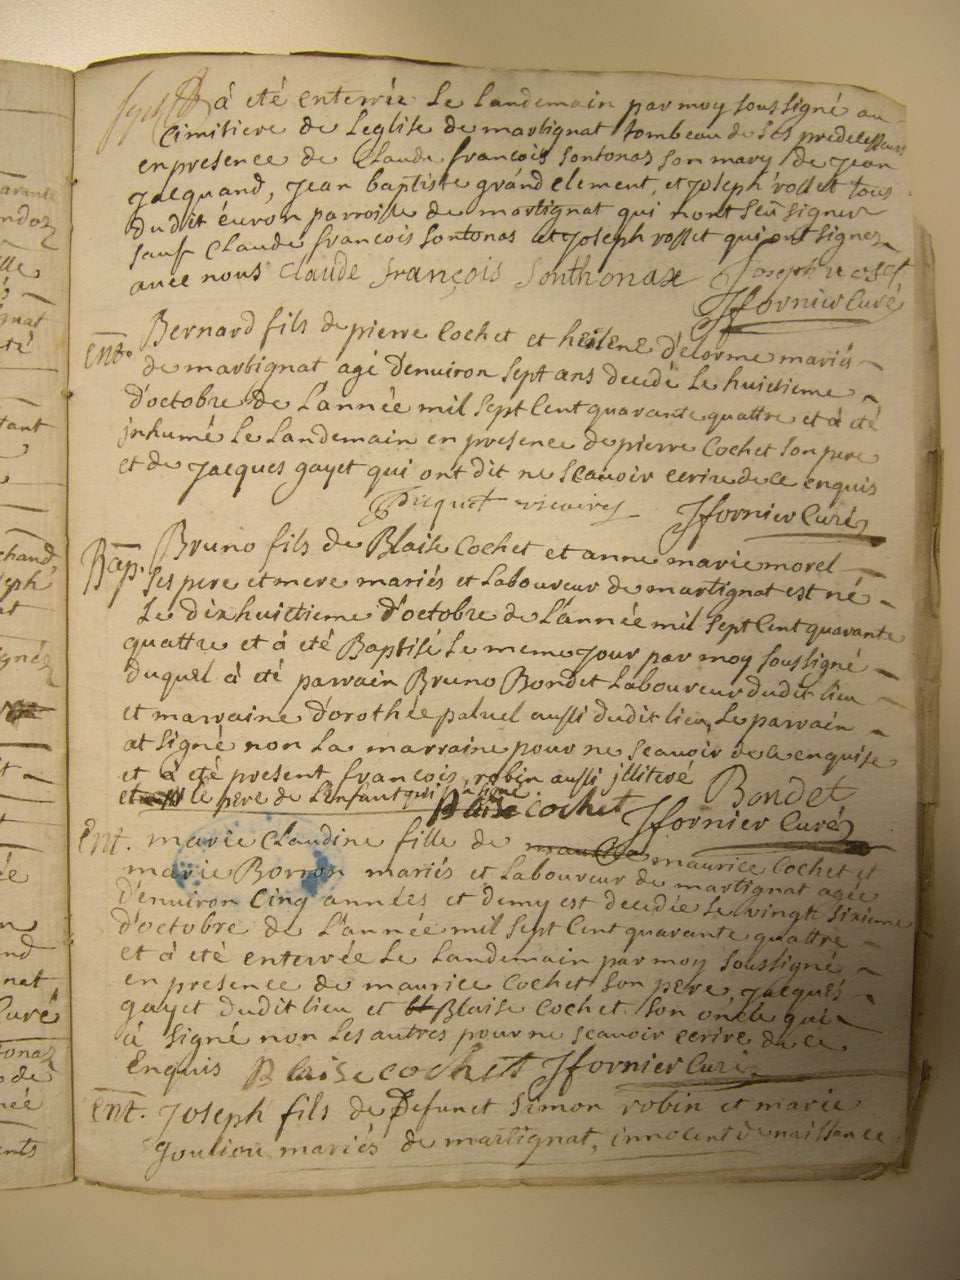 à eté enterrée Le Landemain par moy soussigné au
Cimitiere de Leglise de martignat tombeau de Ses predecesseurs
en presence de Claude françois Sontonas son mary de Jean
Jacquand, Jean baptiste grand clement, et Joseph rosset tous
dudit éuron parroisse de martignat qui nont Seû signer
Sauf Claude françois Sontonas et Joseph rosset qui ont signez
auec nous Claude françois Sonthonax Joseph rosset
Jfornier Curé
Ent. Bernard fils de pierre Cochet et heilene delorme mariés
de martignat agé d'enuiron sept ans decedé Le huictieme
d'octobre de L'année mil sept Cent quarante quattre et à été
jnhumé Le Landemain en presence de pierre Cochet son pere
et de Jacques gayet qui ont dit ne scauoir ecrire de ce enquis
vicaire Jfornier Curé
Bap. Bruno fils de Blaise Cochet et anne marie morel
Ses pere et mere mariés et Laboureur de martignat est né
Le dixhuictieme d'octobre de L'année mil sept Cent quarante
quattre et à eté Baptisé Le meme jour par moy soussigné
duquel à eté parrain Bruno Bondet Laboureur dudit lieu
et marraine dorothée paluel aussi dudit lieu, Le parrain
at signé non La marraine pour ne scauoir de ce enquise
et à eté present françois robin aussi jlliteré Bondet
et le pere de L'enfant qui a signé Blaise cochet Jfornier Curé
Ent. marie Claudine fille de maurice Cochet et
marie Borron mariés et Laboureur de martignat agée
d'enuiron Cinq années et demy est decedée Le vingt sixieme
d'octobre de L'année mil sept Cent quarante quattre
et à eté enterrée Le Landemain par moy soussigné
en presence de maurice Cochet son pere, Jacques
gayet dudit lieu et Blaise Cochet son oncle qui
à signé non Les autres pour ne scauoir ecrire de ce
Enquis Blaise cochet Jfornier Curé
Ent. Joseph fils de Defunct Simon robin et marie
Gouliou mariés de martignat, innocent de naissance